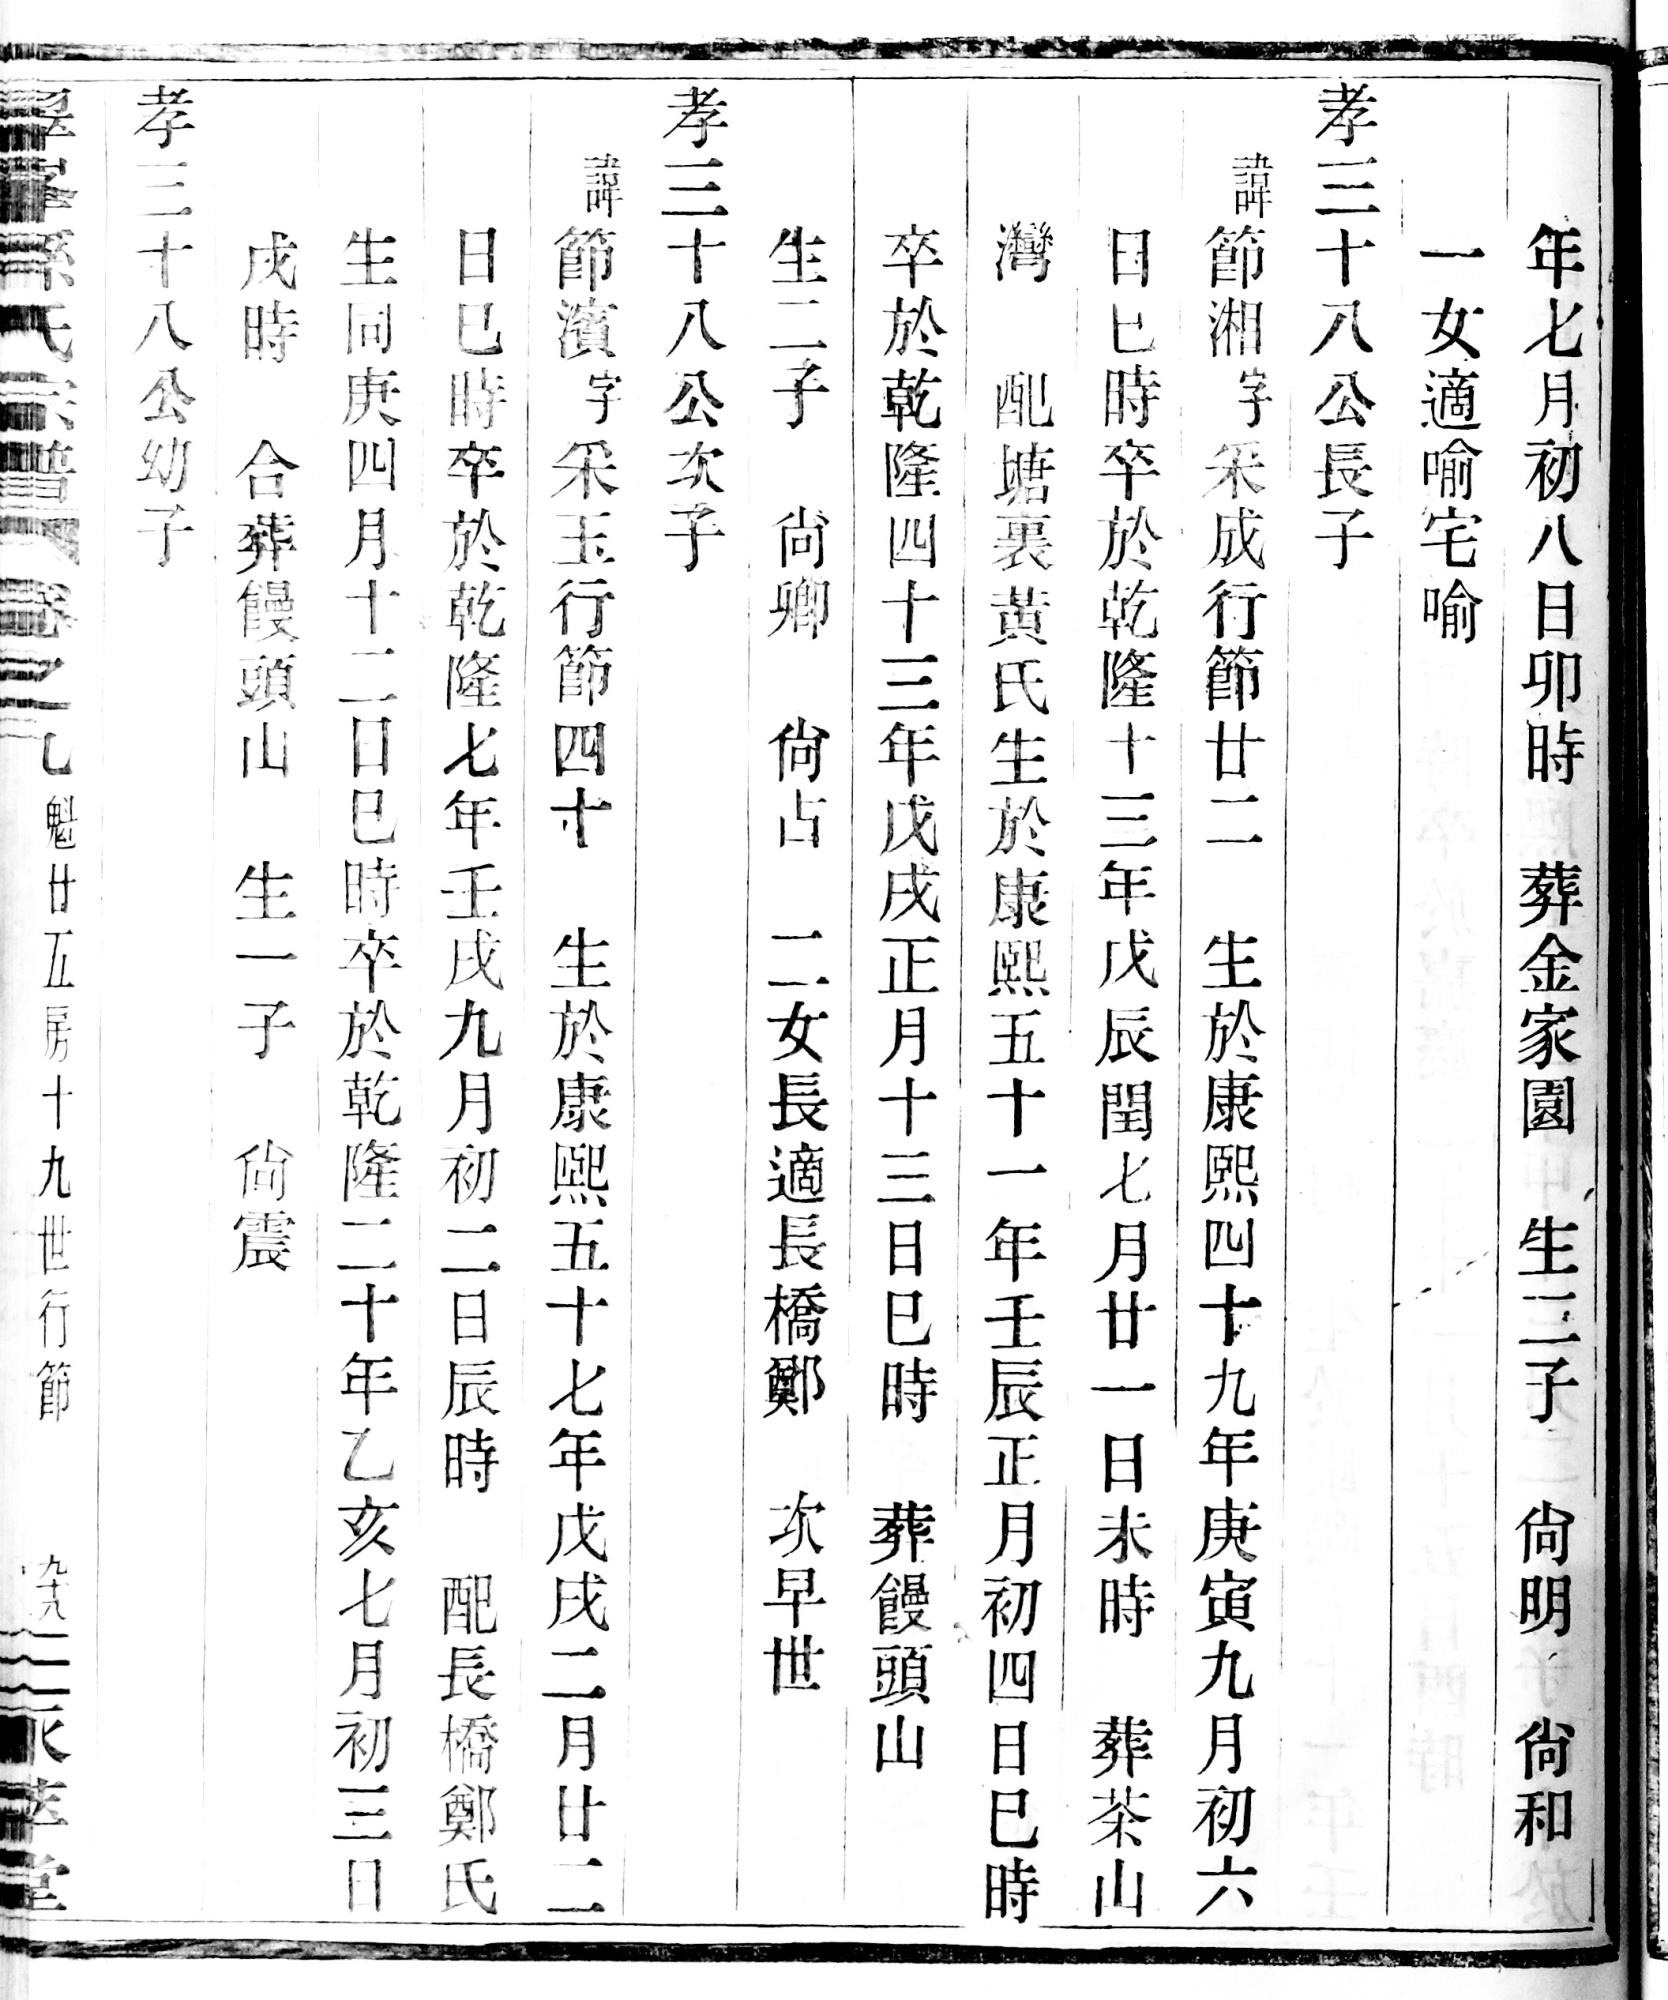 年七月初八日卯時　葬金家園　生三子　尙明　尙和
一女適喻宅喻
孝三十八公長子
諱節湘字采成行節廿二　生於康熙四十九年庚寅九月初六
日巳時卒於乾隆十三年戊辰閏七月廿一日未時　葬茶山
灣　配塘裏黃氏生於康熙五十一年壬辰正月初四日巳時
卒於乾隆四十三年戊戌正月十三日巳時　葬饅頭山
生二子　尙卿　尙占　二女長適長橋鄭　次早世
孝三十八公次子
諱節濱字采玉行節四十　生於康熙五十七年戊戌二月廿二
日巳時卒於乾隆七年壬戌九月初二日辰時　配長橋鄭氏
生同庚四月十二日巳時卒於乾隆二十年乙亥七月初三日
戌時　合葬饅頭山　生一子　尙震
孝三十八公幼子
孫氏宗譜 卷之七 魁廿五房十九世行節 九十八 永萃堂